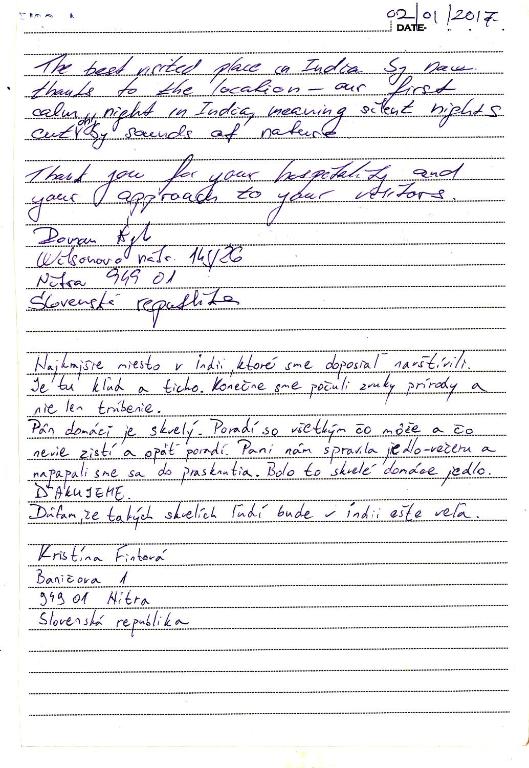 02/01/2017
DATE
The best visited place in India by now
thanks to the location – our first
calm night in India, meaning silent nights
cut only by sounds of nature
Thank you for your hospitality and
your approach to your visitors.
Roman
Wilsonovo nábr. 145/26
Nitra 949 01
Slovenská republika
Najkrajšie miesto v Indii, ktoré sme doposiaľ navštívili.
Je tu kľud a ticho. Konečne sme počuli zvuky prírody a
nie len trúbenie.
Pán domáci je skvelý. Poradí so všetkým čo môže a čo
nevie zistí a opäť poradí. Pani nám spravila jedlo-večeru a
napapali sme sa do prasknutia. Bolo to skvelé domáce jedlo.
ĎAKUJEME.
Dúfam, že takých skvelích ľudí bude v indii ešte veľa.
Kristína Fintová
Banícova 1
949 01 Nitra
Slovenská republika